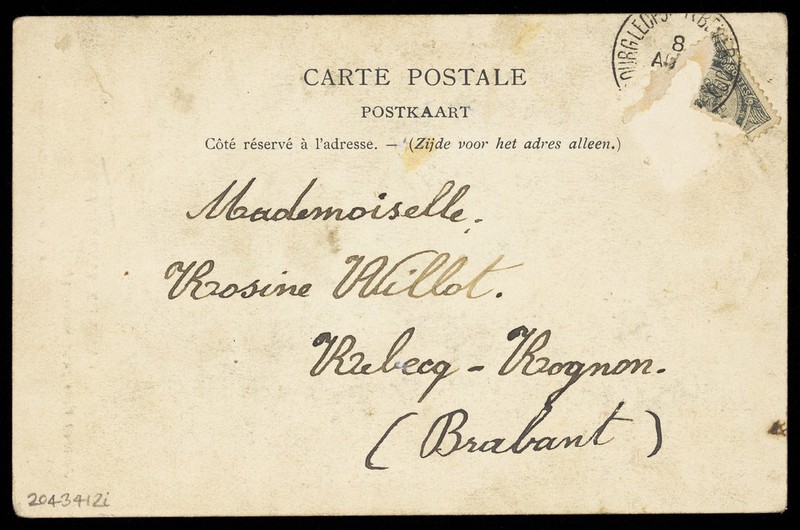 8
CARTE POSTALE
POSTKAART
Côté réservé à l'adresse. — (Zijde voor het adres alleen.)
Mademoiselle.
Rosine Willot.
Rebecq - Rognon.
(Brabant)
2043412i